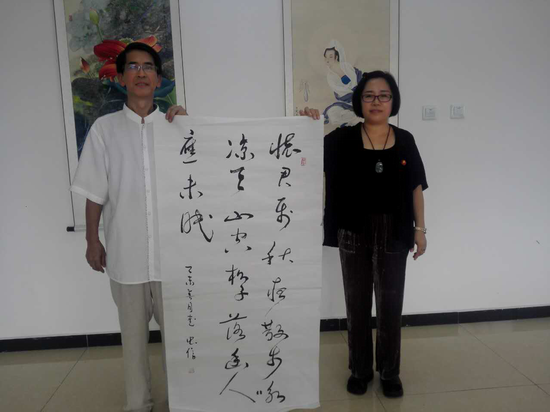 懷君属秋夜散步詠
凉天山空松子落幽人
應未眠